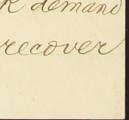 demand
recover